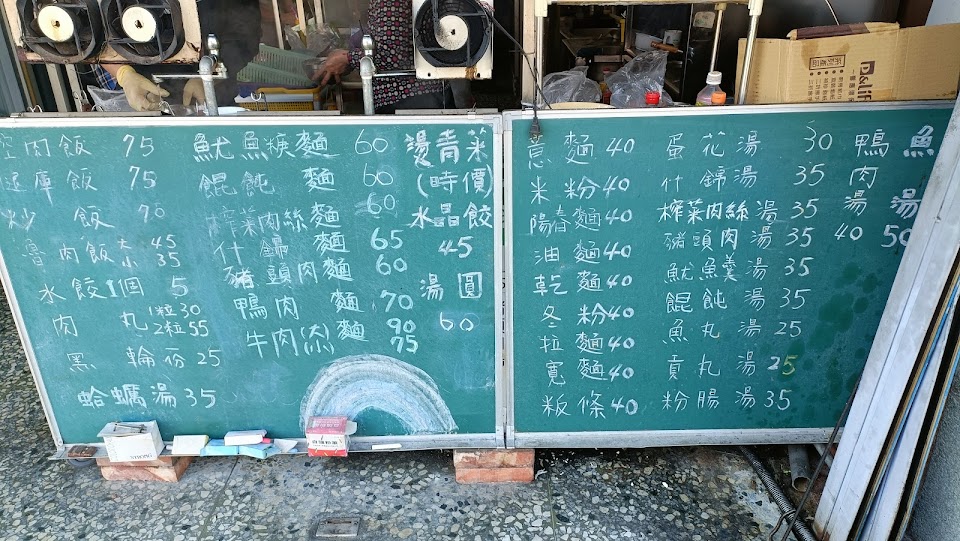 肉飯 75
庫飯 75
炒飯 70
魯肉飯 大45 小35
水餃1個 5
肉丸 1粒30 2粒55
黑輪一份25
蛤蠣湯35
魷魚焿麵 60
餛飩麵 60
榨菜肉絲麵 60
什錦麵 65
豬頭肉麵 60
鴨肉麵 70
牛肉(湯)麵 90 75
燙青菜
(時價)
水晶餃
45
湯圓
60
意麵40
米粉40
陽春麵40
油麵40
乾麵40
冬粉40
拉麵40
寬麵40
粄條40
蛋花湯 30
什錦湯 35
榨菜肉絲湯35
豬頭肉湯35
魷魚羹湯35
餛飩湯35
魚丸湯25
貢丸湯25
粉腸湯35
鴨肉湯 40
魚湯 50